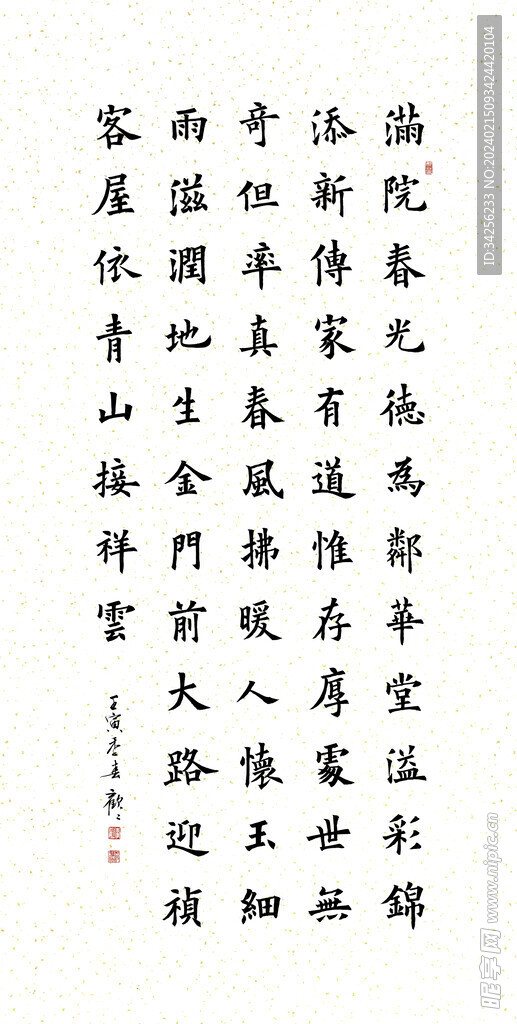 滿院春光德為鄰華堂溢彩錦
添新傳家有道惟存厚處世無
奇但率真春風拂暖人懷玉細
雨滋潤地生金門前大路迎禎
客屋依青山接祥雲
壬寅年春歡々
ID:34256233 NO:20240215093424420104
昵享网 www.nipic.cn